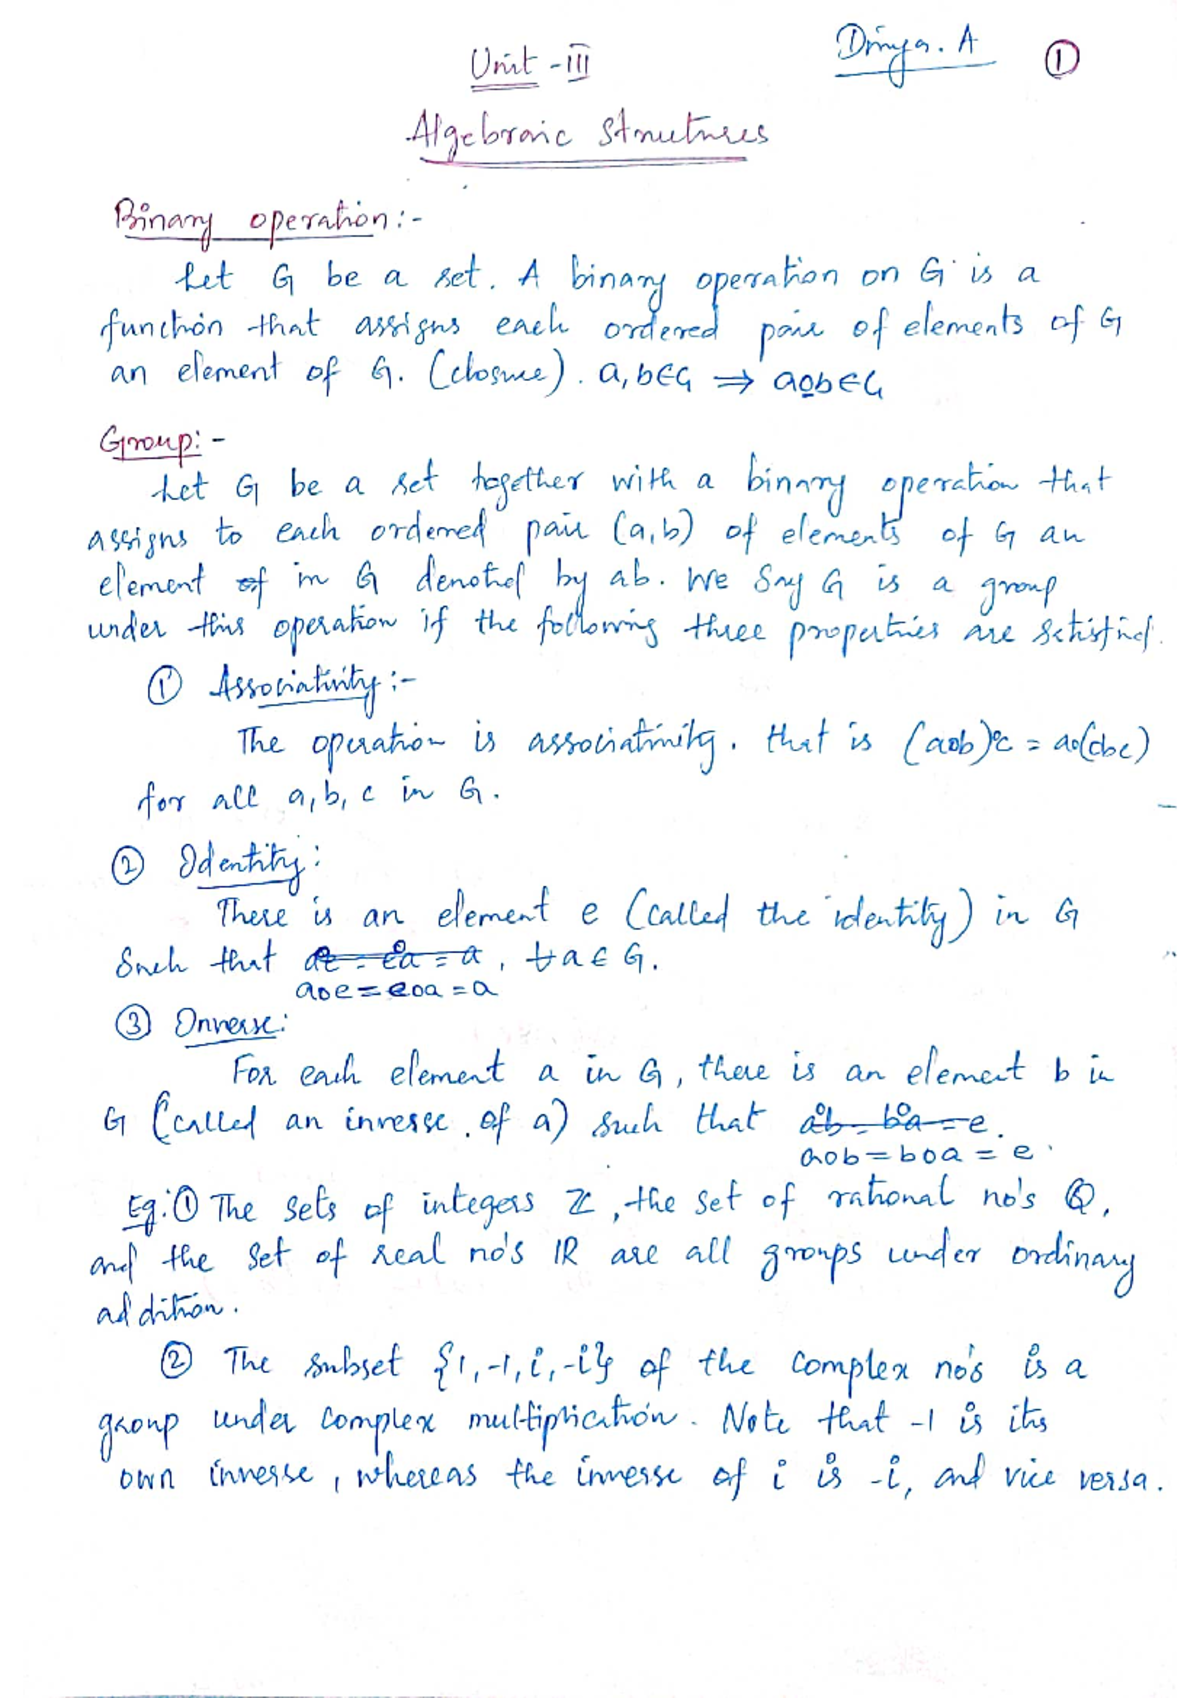 Unit - III
Divya. A
1
Algebraic Structures
Binary operation :-
Let G be a set. A binary operation on G is a
function that assigns each ordered pair of elements of G
an element of G. (closure). a, b∈G ⇒ aob∈G
Group: -
Let G be a set together with a binary operation that
assigns to each ordered pair (a,b) of elements of G an
element of in G denoted by ab. We Say G is a group
under this operation if the following three properties are satisfied.
① Associativity :-
The operation is associativity. that is (aob)oc = ao(obc)
for all a, b, c in G.
② Identity :
There is an element e (called the identity) in G
Such that ae = ea = a, ∀ a ∈ G.
aoe = eoa = a
③ Inverse:
For each element a in G, there is an element b in
G (called an inverse of a) such that ab = ba = e.
aob = boa = e .
Eg: ① The sets of integers Z, the set of rational no's Q,
and the set of real no's IR are all groups under ordinary
addition.
② The subset {1, -1, i, -i} of the complex no's is a
group under complex multiplication. Note that -1 is its
own inverse, whereas the inverse of i is -i, and vice versa.